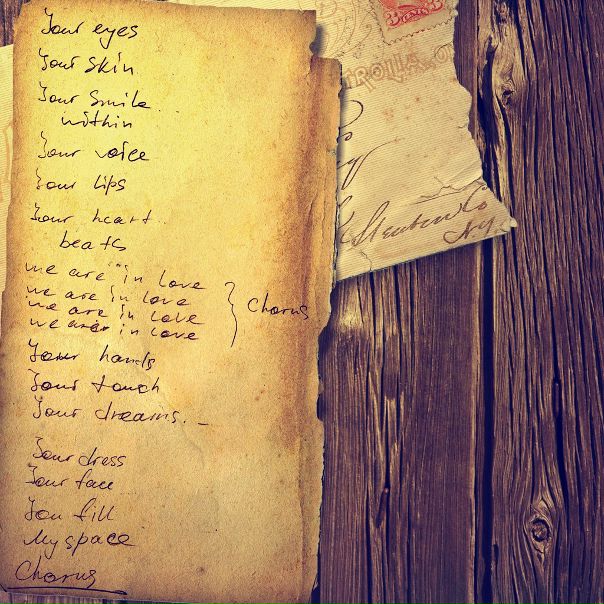 Your eyes
Your skin
Your smile..
within
Your voice
Your lips
Your heart..
beats
we are in love
we are in love
we are in love
we are in love
Chorus
Your hands
Your touch
Your dreams. _
Your dress
Your face
You fill
My space
Chorus
CENTS
Steuben Co
N.Y.